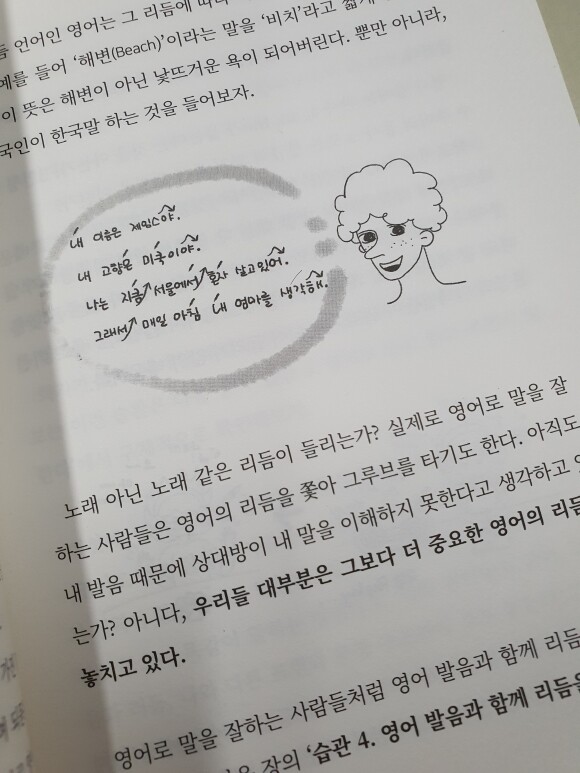 언어인 영어는 그 리듬에 따라
예를 들어 ‘해변(Beach)’이라는 말을 ‘비치’라고 짧게
이 뜻은 해변이 아닌 낯뜨거운 욕이 되어버린다. 뿐만 아니라,
국인이 한국말 하는 것을 들어보자.
내 이름은 제임스야.
내 고향은 미국이야.
나는 지금 서울에서 혼자 살고있어.
그래서 매일 아침 내 엄마를 생각해.
노래 아닌 노래 같은 리듬이 들리는가? 실제로 영어로 말을 잘
하는 사람들은 영어의 리듬을 쫓아 그루브를 타기도 한다. 아직도
내 발음 때문에 상대방이 내 말을 이해하지 못한다고 생각하고
는가? 아니다, 우리들 대부분은 그보다 더 중요한 영어의 리듬
놓치고 있다.
영어로 말을 잘하는 사람들처럼 영어 발음과 함께 리듬
장의 ‘습관 4. 영어 발음과 함께 리듬을